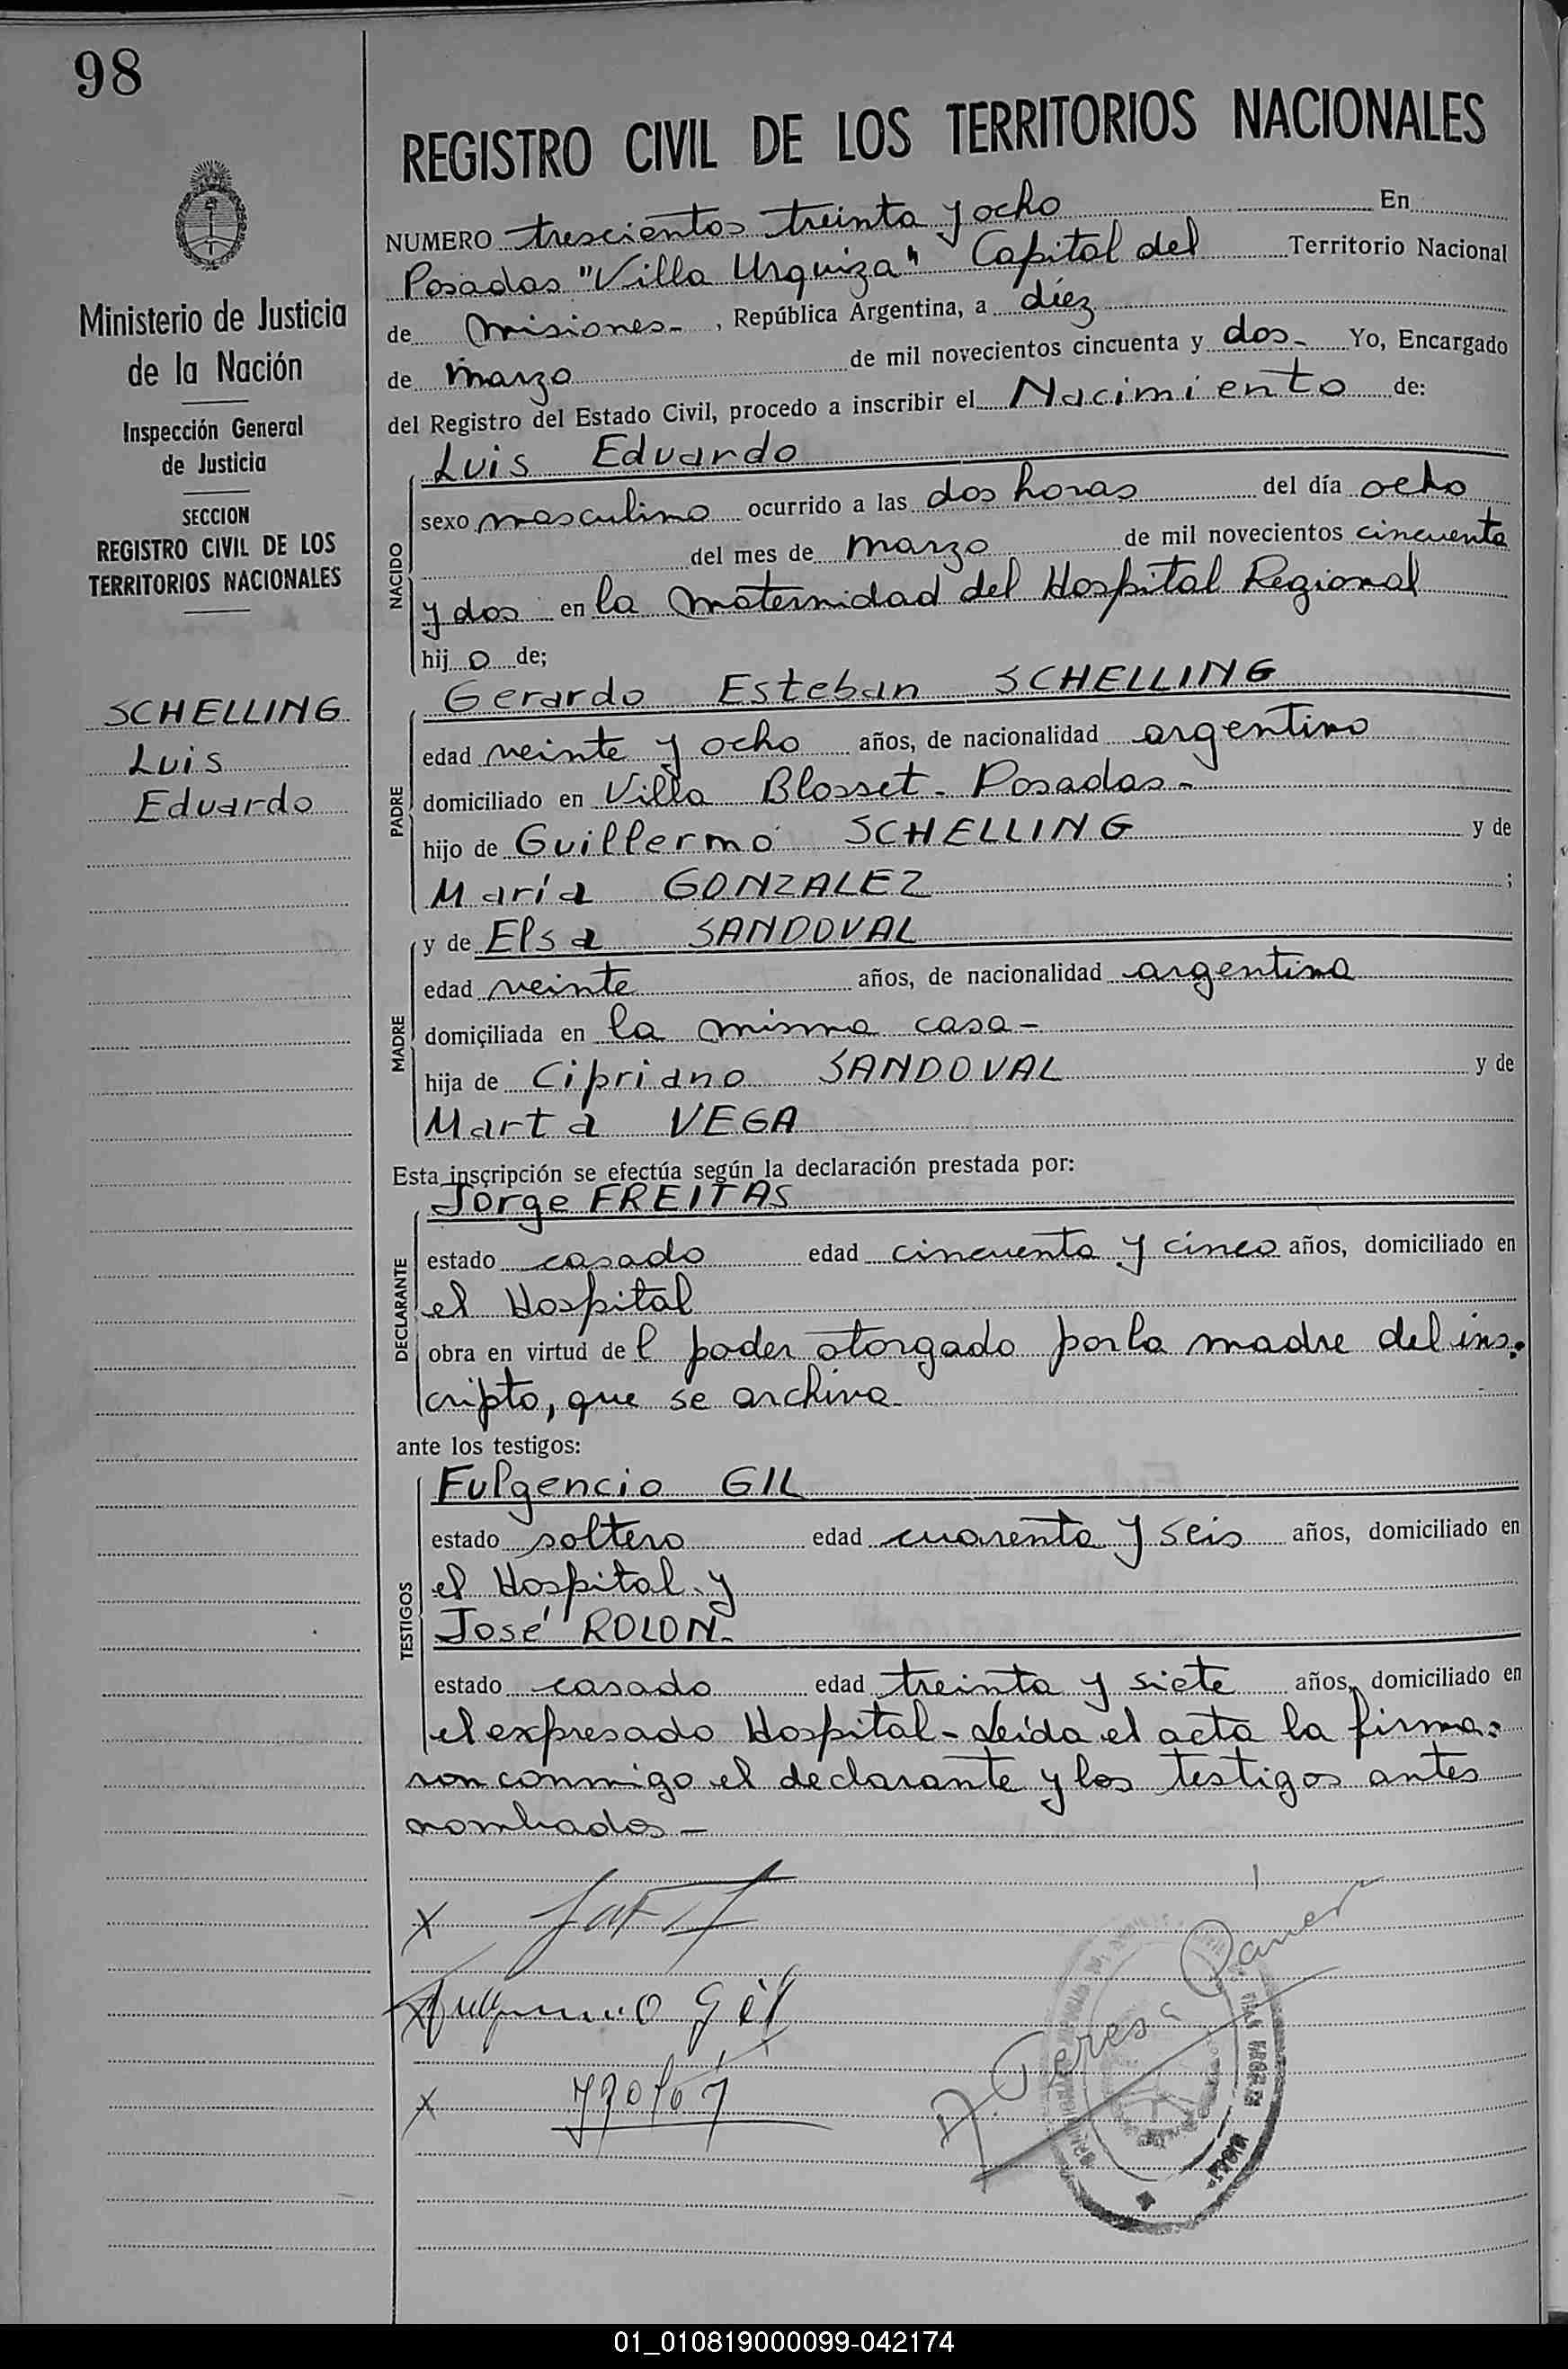 98
REGISTRO CIVIL DE LOS TERRITORIOS NACIONALES
Ministerio de Justicia
de la Nación
Inspección General
de Justicia
SECCION
REGISTRO CIVIL DE LOS
TERRITORIOS NACIONALES
SCHELLING
Luis
Eduardo
NUMERO trescientos treinta y ocho En
Posadas "Villa Urquiza" Capital del Territorio Nacional
de Misiones- , República Argentina, a diez
de marzo de mil novecientos cincuenta y dos- Yo, Encargado
del Registro del Estado Civil, procedo a inscribir el Nacimiento de:
NACIDO
Luis Eduardo
sexo masculino ocurrido a las dos horas del día ocho
del mes de marzo de mil novecientos cincuenta
y dos en la maternidad del Hospital Regional
hij o de;
PADRE
Gerardo Esteban SCHELLING
edad veinte y ocho años, de nacionalidad argentino
domiciliado en Villa Blosset - Posadas -
hijo de Guillermo SCHELLING y de
María GONZALEZ ;
MADRE
y de Elsa SANDOVAL
edad veinte años, de nacionalidad argentina
domiciliada en la misma casa -
hija de Cipriano SANDOVAL y de
Marta VEGA
Esta inscripción se efectúa según la declaración prestada por:
DECLARANTE
Jorge FREITAS
estado casado edad cincuenta y cinco años, domiciliado en
el Hospital
obra en virtud de l poder otorgado por la madre del ins-
cripto, que se archiva-
ante los testigos:
TESTIGOS
Fulgencio GIL
estado soltero edad cuarenta y seis años, domiciliado en
el Hospital y
José ROLON-
estado casado edad treinta y siete años, domiciliado en
el expresado Hospital - Leída el acta la firma=
ron conmigo el declarante y los testigos antes
nombrados -
X
X Fulgencio Gil
X
A. Teresa
01_010819000099-042174